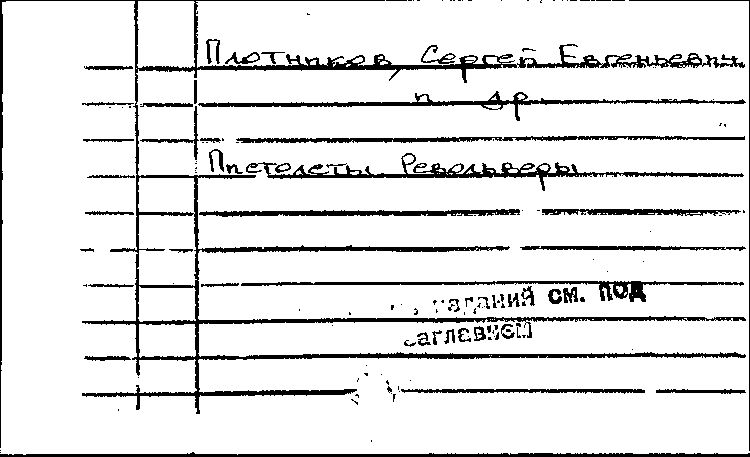 Плотников, Сергей Евгеньевич
и др.
Пистолеты. Револьверы
изданий см. под
заглавием